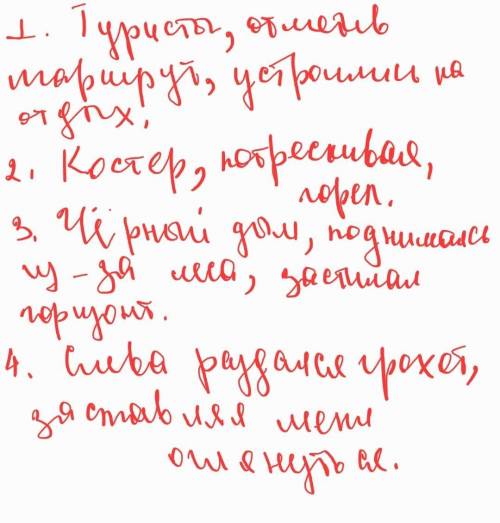 1. Туристы, отметив
маршрут, устроились на
отдых.
2. Костер, потрескивая,
горел.
3. Чёрный дым, поднимаясь
из-за леса, застилал
горизонт.
4. Слева раздался грохот,
заставляя меня
оглянуться.